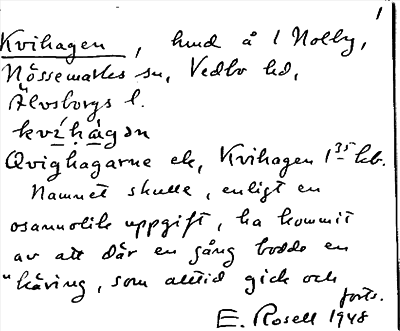 1
Kvihagen, hmd å 1 Nolby,
Nössemarks sn, Vedbo hd,
Älvsborgs l.
kvíhàgən
Qvighagarne ek, Kvihagen 1 35 hb.
Namnet skulle, enligt en
osannolik uppgift, ha kommit
av att där en gång bodde en
"käring, som alltid gick och
forts.
E. Rosell 1948